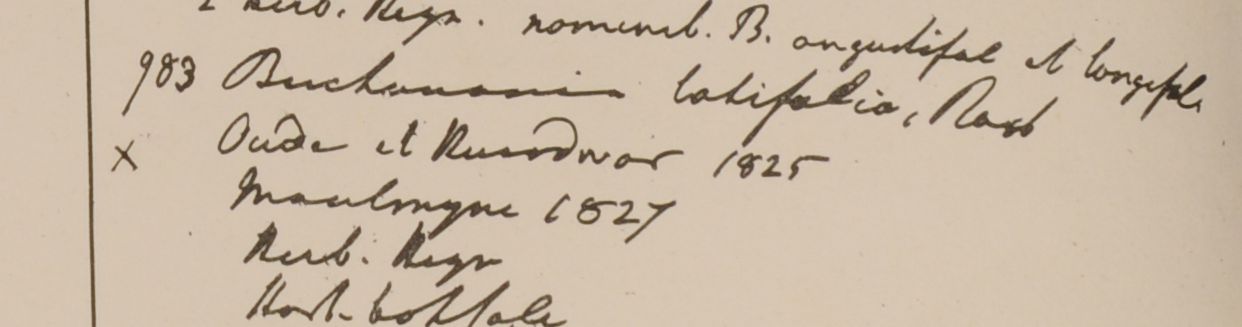 Herb. Heyn. nomencl. B. angustifol et longifol
983 Buchanania latifolia, Roxb
x Oude et Hurdwar 1825
Moulmyne 1827
Herb. Heyn
Hort. bot